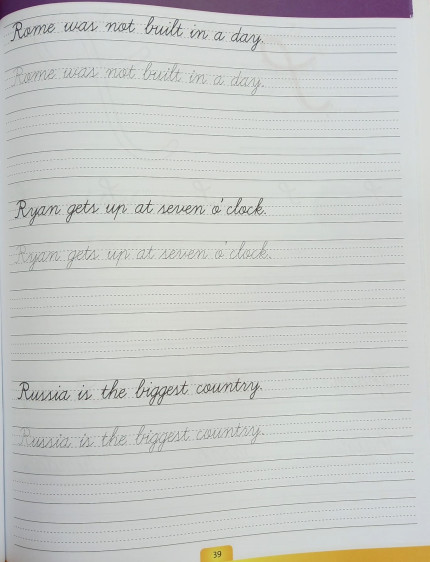 Rome was not built in a day.
Rome was not built in a day.
Ryan gets up at seven o'clock.
Ryan gets up at seven o'clock.
Russia is the biggest country.
Russia is the biggest country.
39